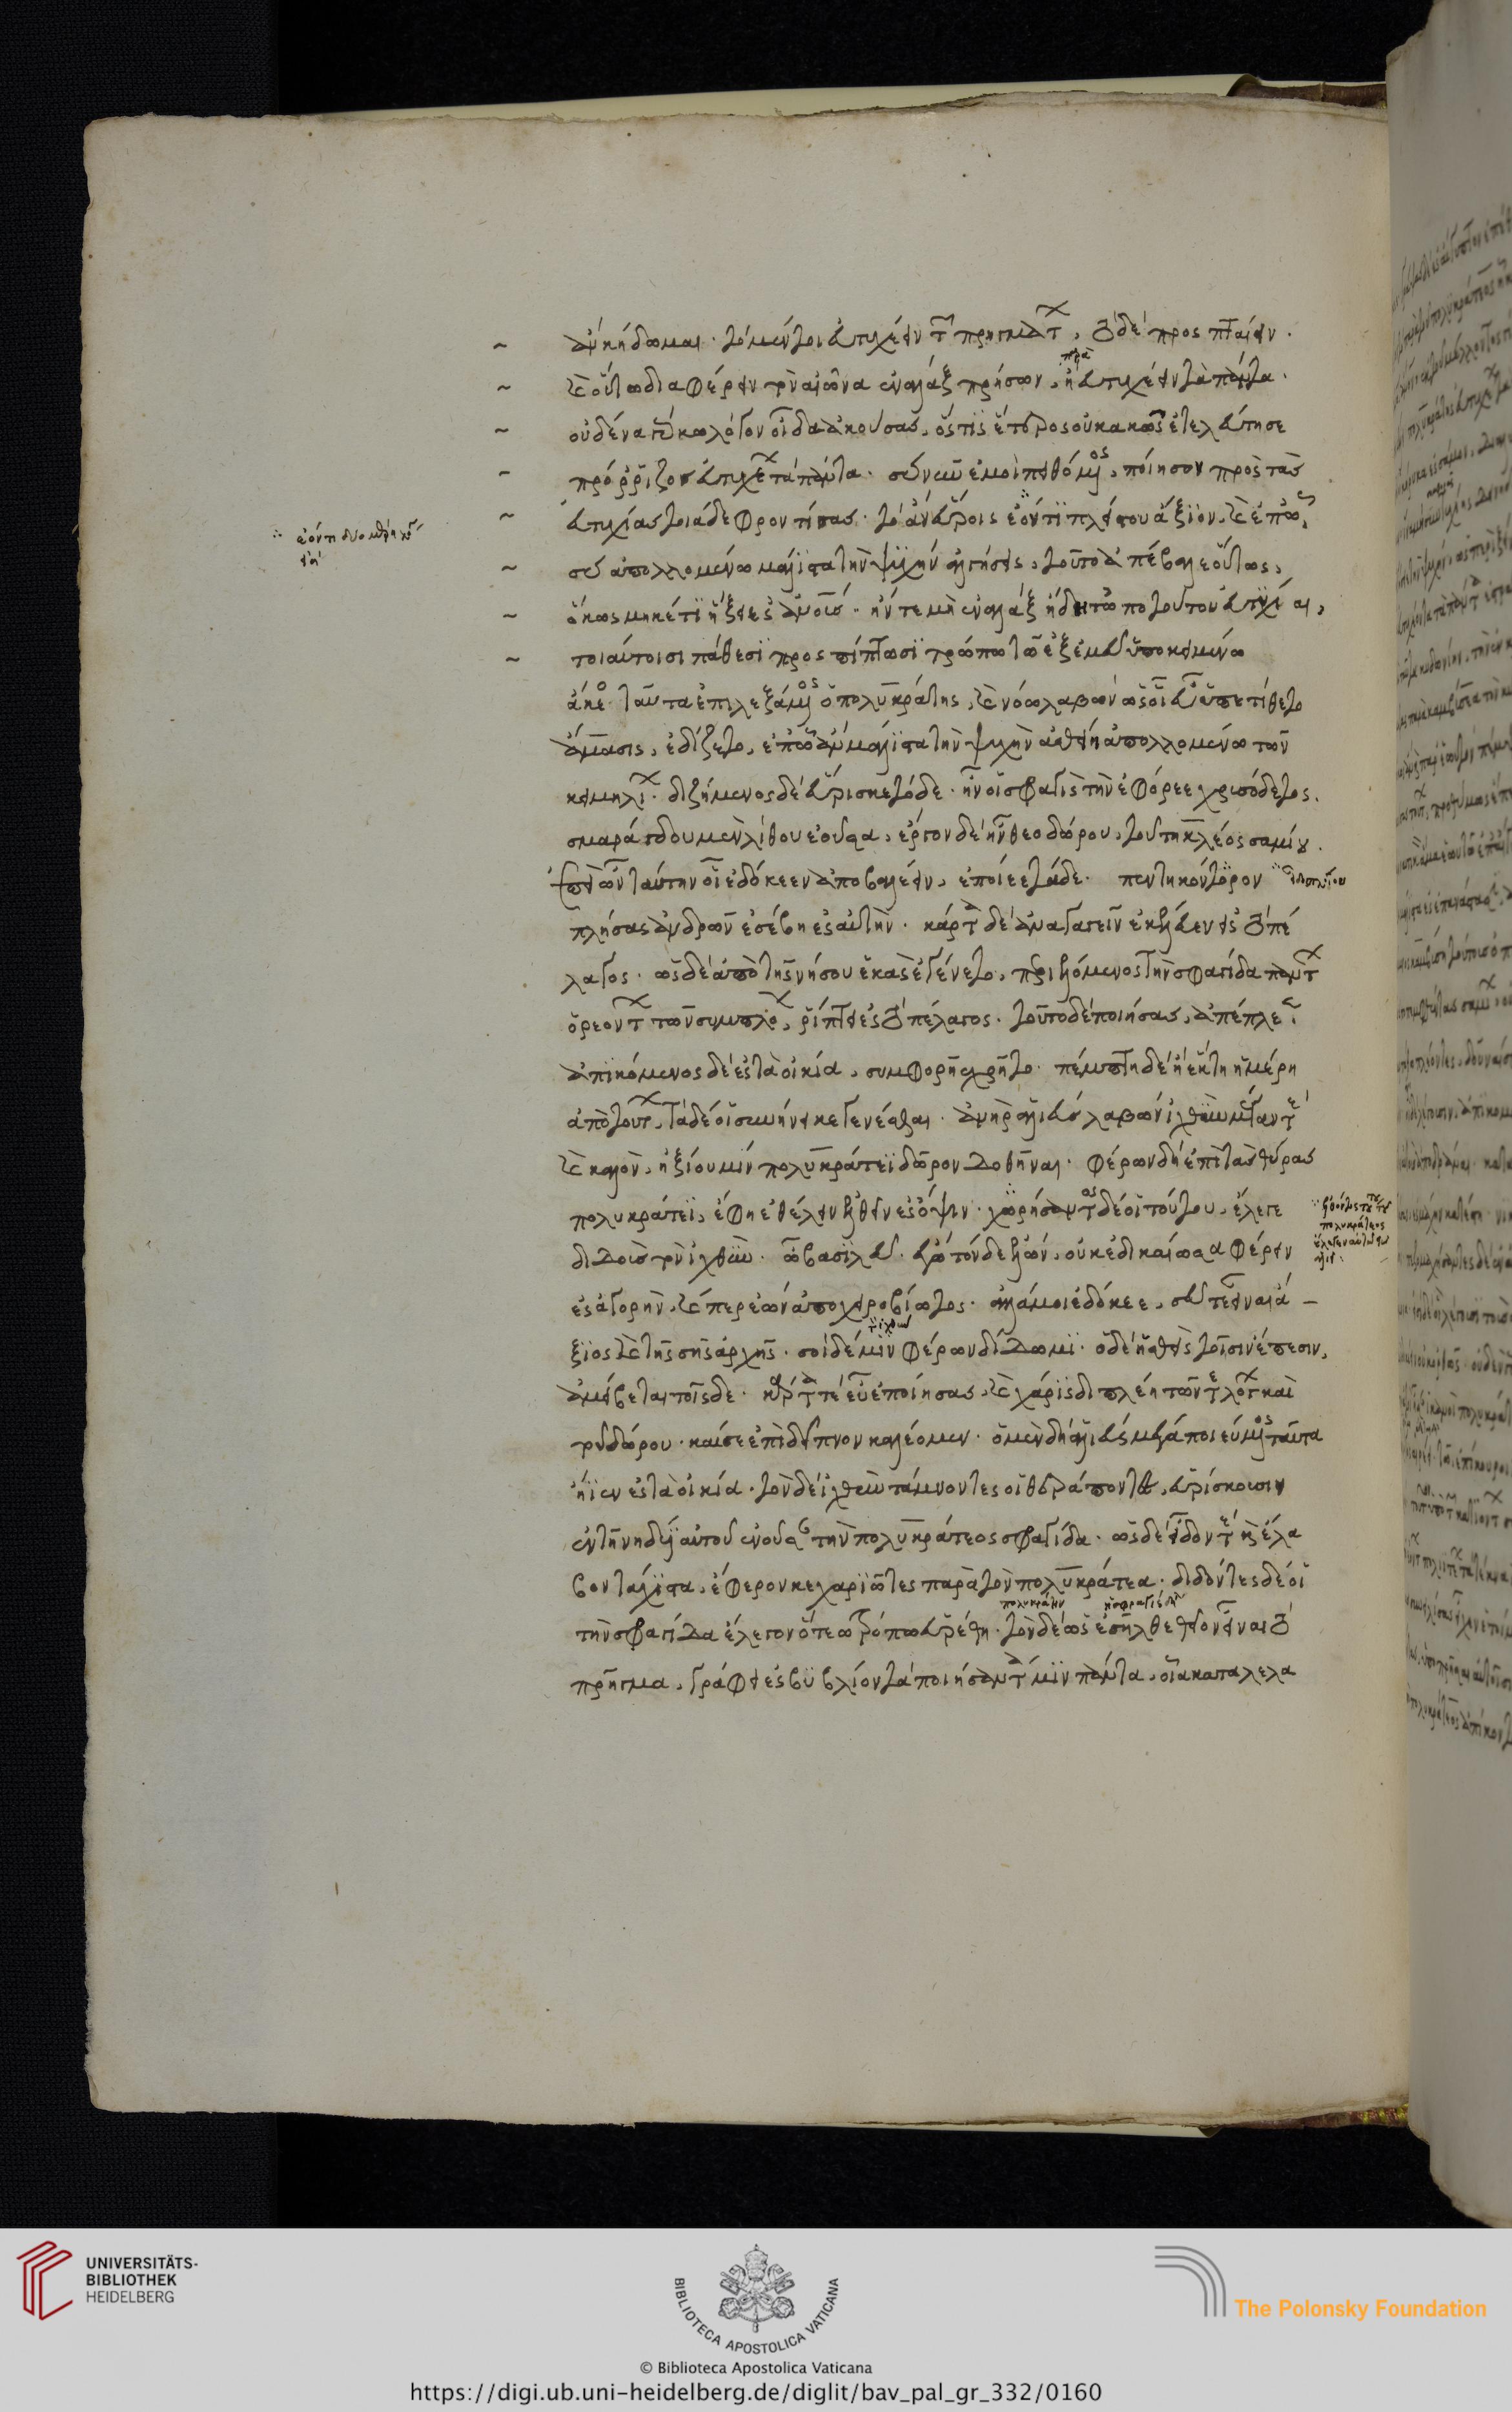 ἂν κήδωμαι. τὸ μέν τοι εὐτυχέειν τῶν πρηγμάτων, τὸ δὲ προσπταίειν.
καὶ οὕτω διαφέρειν τὸν αἰῶνα ἐναλὰξ πρήσων, ἢ εὐτυχέειν τὰ πάντα.
οὐδένα γάρ κω λόγον οἶδα ἀκούσας, ὅστις ἕτερος οὐ κακῶς ἐτελεύτησε
πρόρριζος εὐτυχέων τὰ πάντα. σύ νυν ἐμοὶ πειθόμενος, ποίησον πρὸς τὰς
εὐτυχίας τοιάδε φροντίσας. τὸ ἂν εὕροις ἐόντι πλείστου ἄξιον, καὶ ἐπ' ᾧ
σὺ ἀπολλομένω μάλιστα τὴν ψυχὴν ἀλγήσεις, τοῦτο ἀπέβαλε οὕτως,
ὅκως μηκέτι ἥξει ἐς ἀνους. ἤν τε μὴ ἐναλὰξ ἤδη τὠπο τούτου εὐτυχίαι,
τοιαύτοισι πάθεσι προσπίπτωσι τρόπω τῶ ἐξ ἐμεῦ ὑποκειμένω
ἀκέο. ταῦτα ἐπιλεξάμενος ὁ πολυκράτης, καὶ νόω λαβὼν ὥς οἱ εὖ ὑπετίθετο
ἄμασις, ἐδίζετο, ἐπ' ὧ ἂν μάλιστα τὴν ψυχὴν ἀσθείη ἀπολλομένω τῶν
κειμηλίων. διζήμενος δὲ εὕρισκε τόδε. ἦν οἱ σφραγὶς τὴν ἐφόρεε χρυσόδετος.
σμαράγδου μὲν λίθου ἐοῦσα, ἔργον δὲ ἦν θεοδώρου, τοῦ τηκλέος σαμίου.
ἐπεὶ ὦν ταύτην οἱ ἐδόκεεν ἀποβαλέειν, ἐποίεε τάδε. πεντηκόντορον
πλήσας ἀνδρῶν ἐσέβη ἐς αὐτήν. κάρτα δὲ ἀναγαγεῖν ἐκέλευν ἐς τὸ πέ
λαγος. ὡς δὲ ἀπὸ τῆς νήσου ἑκὰς ἐγένετο, περιελόμενος τὴν σφραγῖδα πάντων
ὁρεόντων τῶν συμπλόων, ῥίπτει ἐς τὸ πέλαγος. τοῦτο δὲ ποιήσας, ἀπέπλεε.
ἀπικόμενος δὲ ἐς τὰ οἰκία, συμφορῆ ἐχρῆτο. πέμπτη δὲ ἢ ἕκτη ἡμέρη
ἀπὸ τούτων, τάδε οἱ συνήνεικε γενέσθαι. ἀνὴρ ἁλιεὺς λαβὼν ἰχθὺν μέγαν τε
καὶ καλὸν, ἠξίου μιν πολυκράτεϊ δῶρον δοθῆναι. φέρων δὴ ἐπὶ τὰς θύρας
πολυκράτεϊ, ἔφη ἐθέλειν ἐλθεῖν ἐς ὄψιν. χωρήσαντος δέ οἱ τούτου, ἔλεγε
διδοὺς τὸν ἰχθὺν. ὦ βασιλεῦ. ἐγὼ τόνδε ἑλὼν, οὐκ ἐδικαίωσα φέρειν
ἐς ἀγορὴν, καίπερ ἐὼν ἀποχειροβίωτος. ἀλλά μοι ἐδόκεε, σεῦ τε εἶναι ἄ–
ξιος καὶ τῆς σῆς ἀρχῆς. σοὶ δέ μιν φέρων δίδωμι. ὁ δὲ ἡσθεὶς τοῖσιν ἔπεσιν,
ἀμείβεται τοῖσδε. κάρτα τε εὖ ἐποίησας, καὶ χάρις διπλέη τῶν τε λόγων καὶ
τοῦ δώρου. καί σε ἐπὶ δεῖπνον καλέομεν. ὁ μὲν δὴ ἁλιεὺς μέγα ποιεύμενος ταῦτα
ἤϊεν ἐς τὰ οἰκία. τὸν δὲ ἰχθὺν τάμνοντες οἱ θεράποντες, εὑρίσκουσιν
ἐν τῆ νηδύϊ αὐτοῦ ἐνοῦσαν τὴν πολυκράτεος σφραγῖδα. ὡς δὲ εἶδόν τε καὶ ἔλα
βον τάχιστα, ἔφερον κεχαριῶτες παρὰ τὸν πολυκράτεα. διδόντες δέ οἱ
τὴν σφραγῖδα ἔλεγον ὅτεω τρόπω εὑρέθη. τὸν δὲ ὡς ἐσῆλθε θεῖον εἶναι τὸ
πρῆγμα, γράφει ἐς βυβλίον τὰ ποιήσαντά μιν πάντα, οἷα καταλελα
UNIVERSITÄTS-
BIBLIOTHEK
HEIDELBERG
BIBLIOTECA APOSTOLICA VATICANA
The Polonsky Foundation
© Biblioteca Apostolica Vaticana
https://digi.ub.uni-heidelberg.de/diglit/bav_pal_gr_332/0160